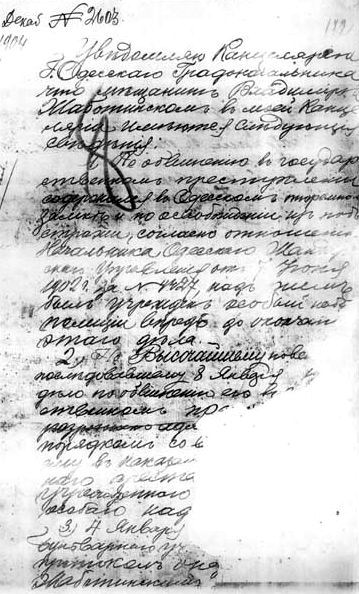 Декаб № 2603
1904
Увѣдомляю Канцелярію
Г. Одесскаго Градоначальника
что о мѣщанинѣ Владимірѣ
Жаботинскомъ въ моей Канце
ляріи имѣются слѣдующія
свѣдѣнія:
1, По обвиненію въ государ
ственномъ преступленіи
содержался въ Одесскомъ тюремномъ
замкѣ и по освобожденіи изъ подъ
стражи, согласно отношенію
Начальника Одесскаго Жан
управленія отъ Іюня
1902 г. за № 4427, надъ нимъ
былъ учрежденъ особый над
полиціи впредь до окончан
этого дѣла. —
2, По Высочайшему пове
послѣдовавшему 8 Января
дѣло по обвиненію его в
разрѣшено адм
порядкомъ со в
ему въ наказан
наго ареста
учрежденнаго
особаго над
3, 4 Января
Жаботинскимъ